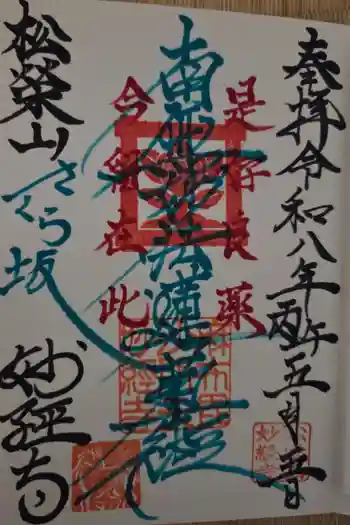 奉拝 令和八年 丙午 五月吉日
是好良薬
南無妙法蓮華経
今留在此
松榮山
さくら坂
妙經寺